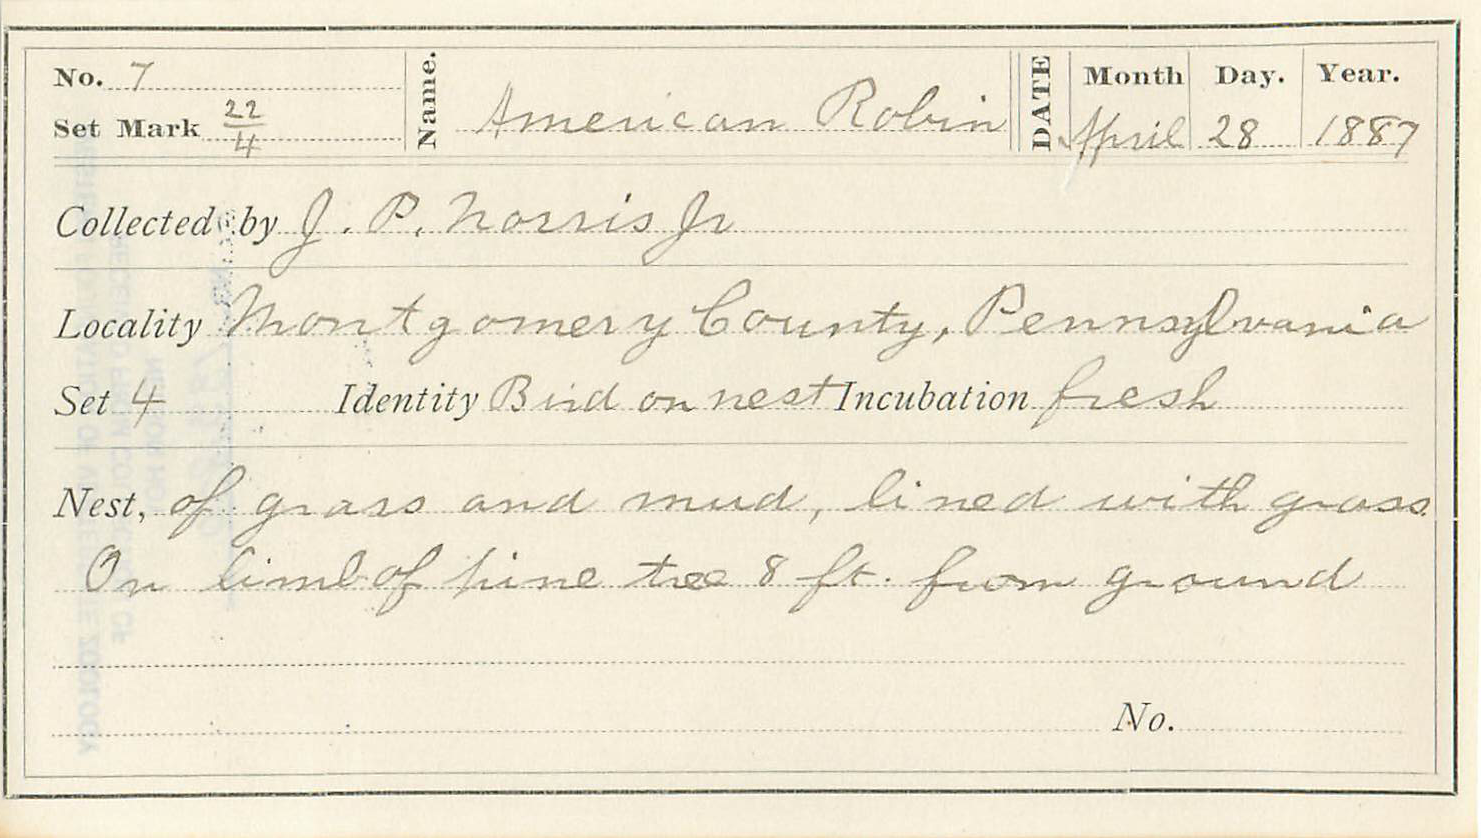 No. 7
Set Mark 22/4
Name. American Robin
DATE Month Day. Year.
April 28 1887
Collected by J. P. Norris Jr
Locality Montgomery County, Pennsylvania
Set 4 Identity Bird on nest Incubation fresh
Nest, of grass and mud, lined with grass.
On limb of pine tree 8 ft. from ground
No.